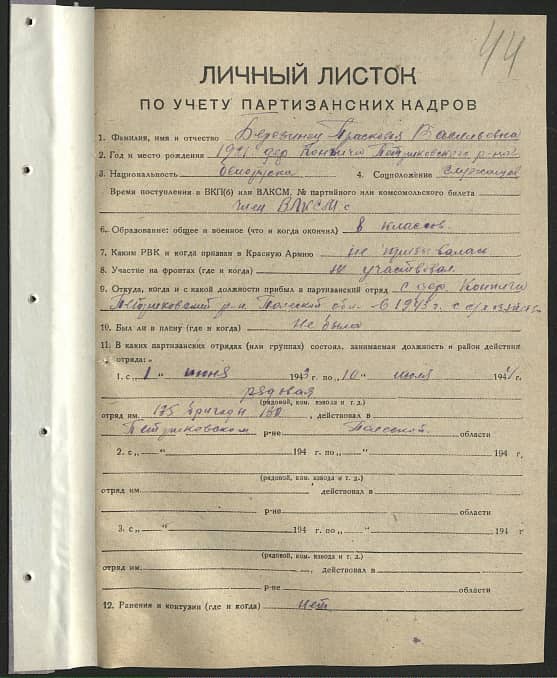 44
ЛИЧНЫЙ ЛИСТОК
ПО УЧЕТУ ПАРТИЗАНСКИХ КАДРОВ
1. Фамилия, имя и отчество Прасковья Васильевна
2. Год и место рождения 1921 дер
3. Национальность белоруска 4. Соцположение служащая
Время поступления в ВКП(б) или ВЛКСМ, № партийного или комсомольского билета
член ВЛКСМ с
6. Образование: общее и военное (что и когда окончил) 8 классов
7. Каким РВК и когда призван в Красную Армию не призывалась
8. Участие на фронтах (где и когда) не участвовал
9. Откуда, когда и с какой должности прибыл в партизанский отряд с дер.
р-н Полесской обл. в 1943 г. с
10. Был ли в плену (где и когда) Не была
11. В каких партизанских отрядах (или группах) состоял, занимаемая должность и район действия
отряда:
1. с „1 “ июня 1943 г. по „10 “ июля 1944 г.
рядовая
(рядовой, ком. взвода и т. д.)
отряд им. 175 бригады 130, действовал в
р-не Полесской области
2. с „ “ 194 г. по „ “ 194 г.
(рядовой, ком. взвода и т. д.)
отряд им. , действовал в
р-не области
3. с „ “ 194 г. по „ “ 194 г.
(рядовой, ком. взвода и т. д.)
отряд им. , действовал в
р-не области
12. Ранения и контузии (где и когда) нет